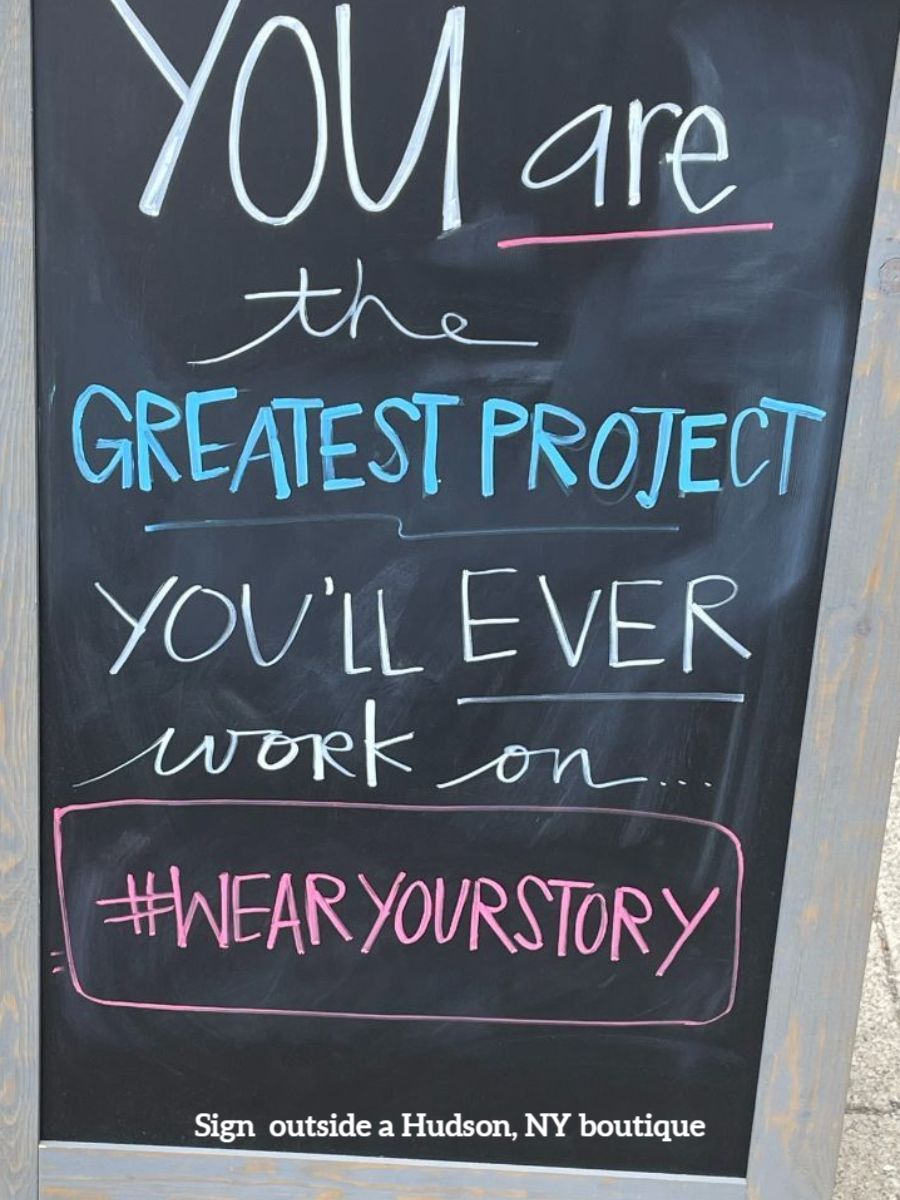 YOU are
the
GREATEST PROJECT
YOU'LL EVER
work on...
#WEARYOURSTORY
Sign outside a Hudson, NY boutique